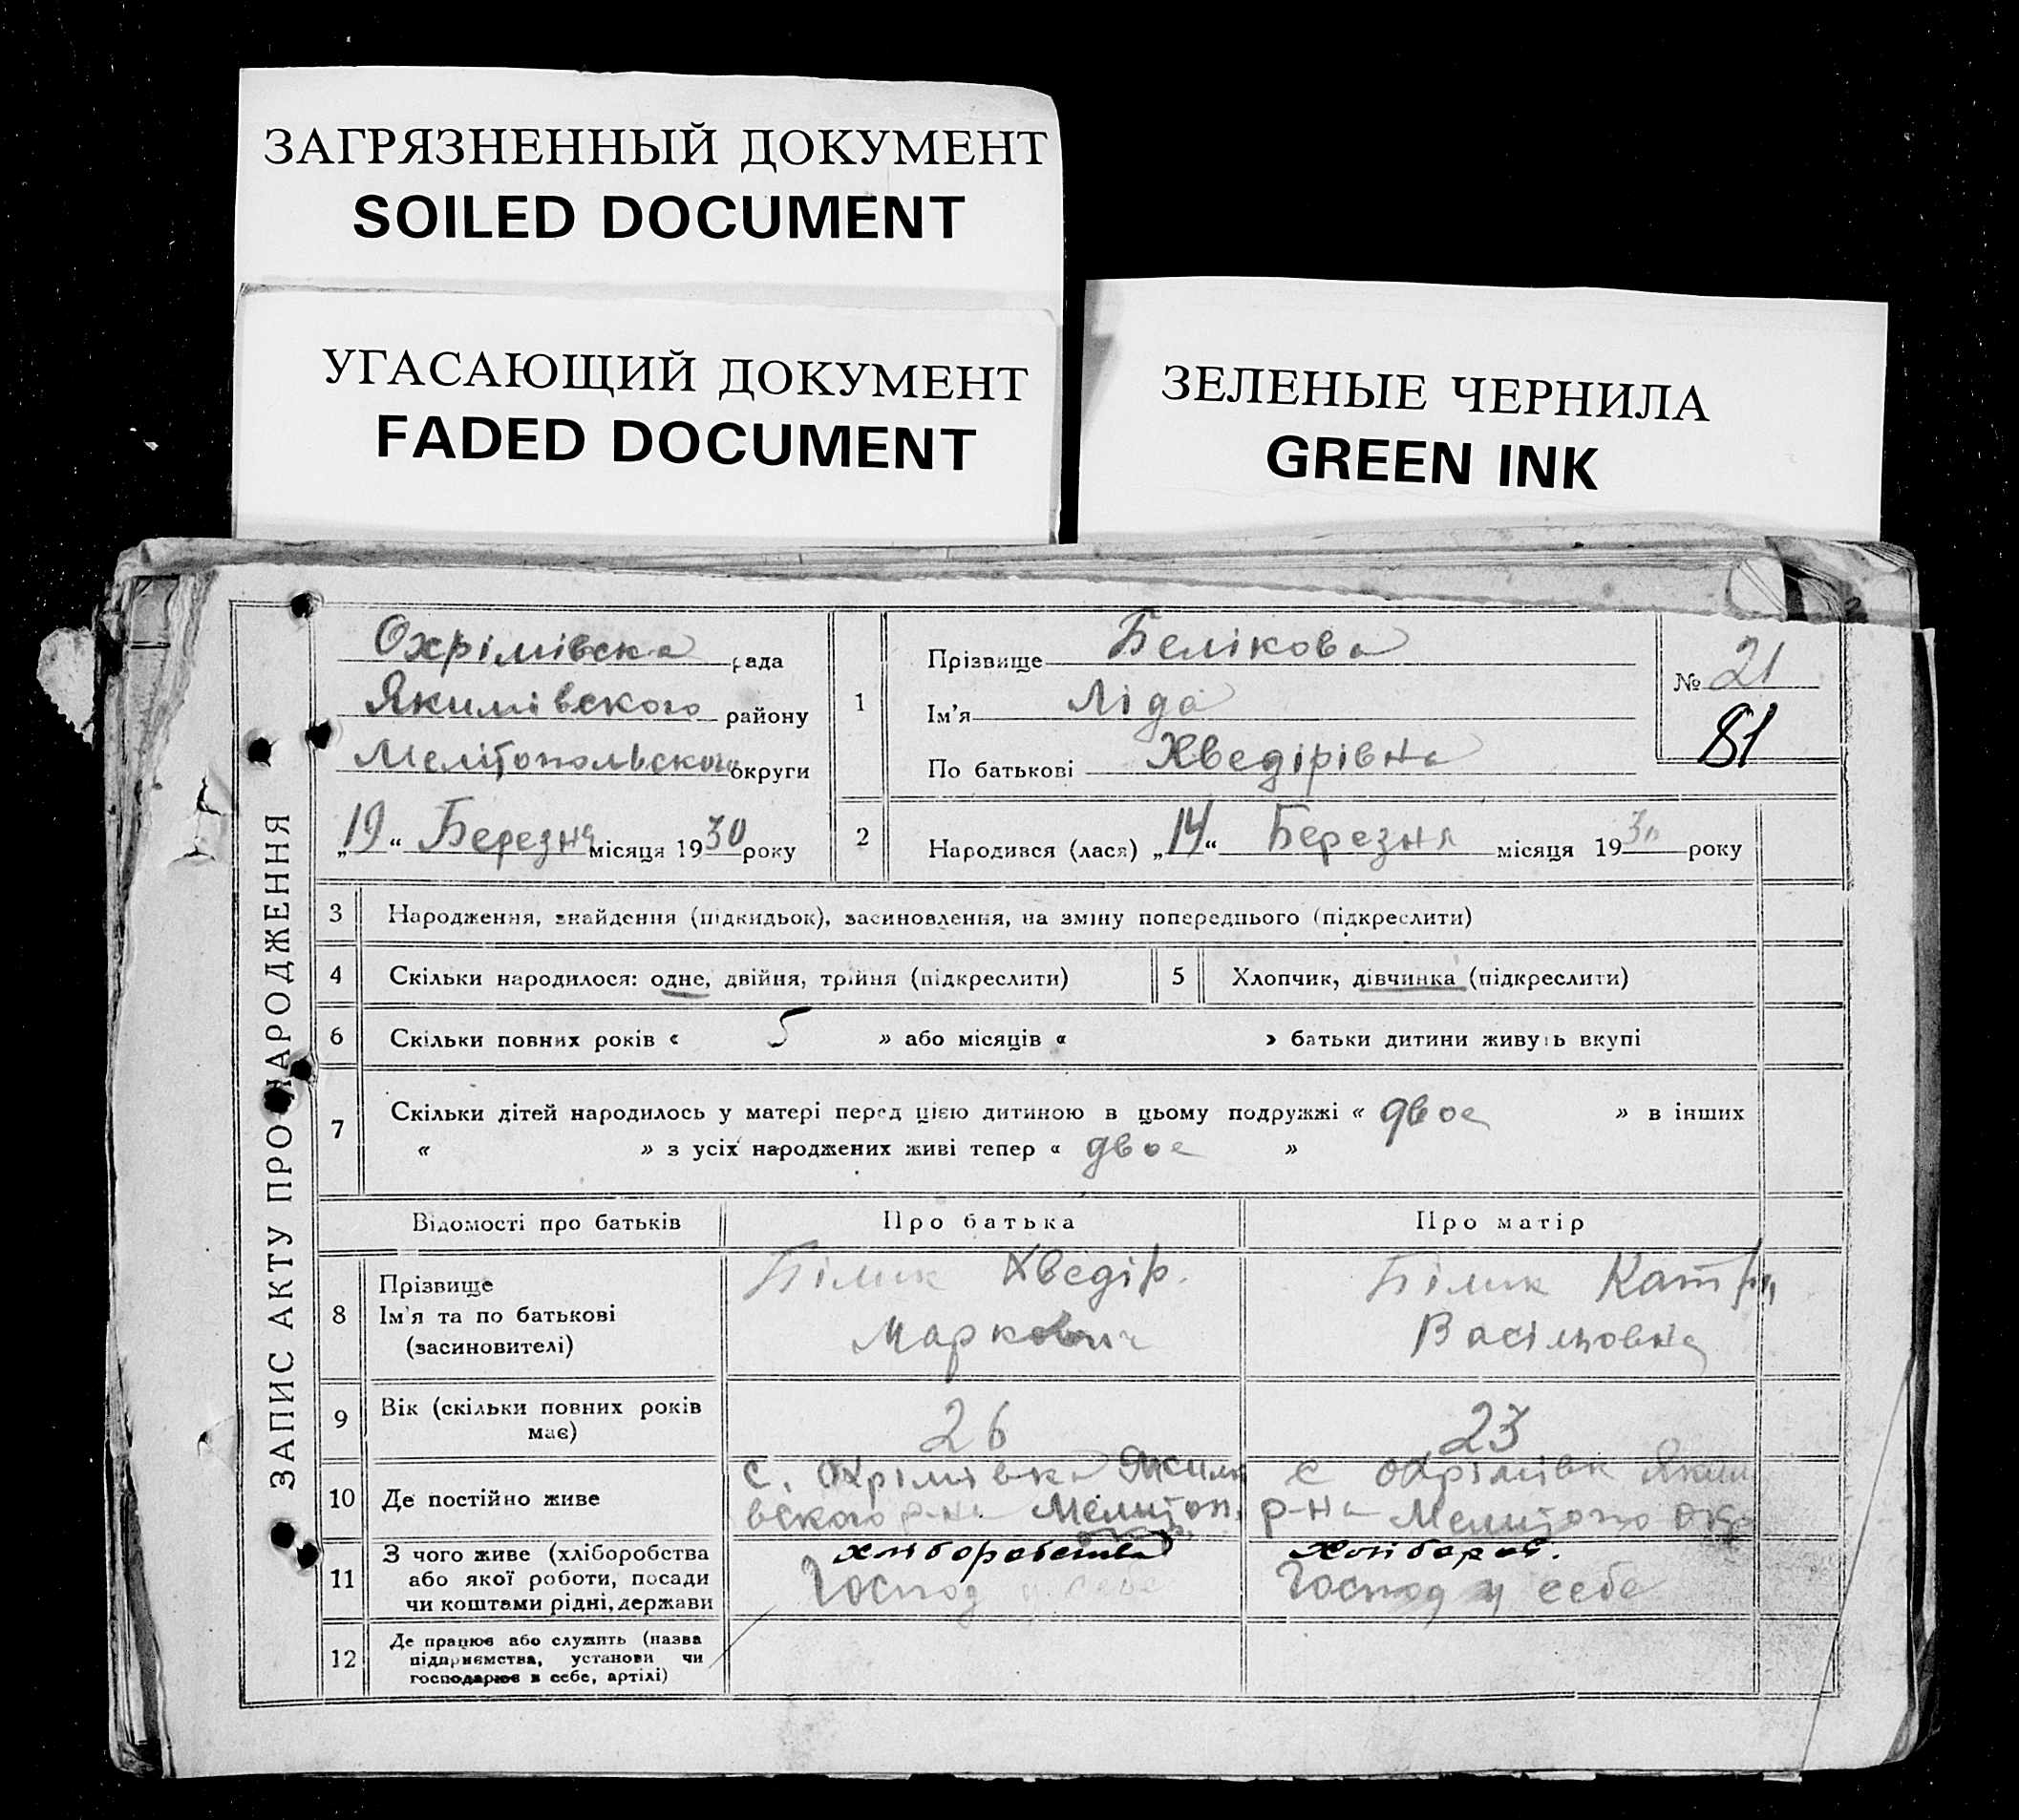 ЗАГРЯЗНЕННЫЙ ДОКУМЕНТ
SOILED DOCUMENT
УГАСАЮЩИЙ ДОКУМЕНТ
FADED DOCUMENT
ЗЕЛЕНЫЕ ЧЕРНИЛА
GREEN INK
ЗАПИС АКТУ ПРО НАРОДЖЕННЯ
Охрімівска рада
Якимівского району
Мелітопольского округи
„19“ Березня місяця 1930 року
1
Прізвище Белікова
Ім'я Ліда
По батькові Хведірівна
№ 21
81
2 Народився (лася) „14“ Березня місяця 1930 року
3 Народження, знайдення (підкидьок), засиновлення, на зміну попереднього (підкреслити)
4 Скільки народилося: одне, двійня, трійня (підкреслити) 5 Хлопчик, дівчинка (підкреслити)
6 Скільки повних років « 5 » або місяців « » батьки дитини живуть вкупі
7 Скільки дітей народилось у матері перед цією дитиною в цьому подружжі « двое » в інших
« » з усіх народжених живі тепер « двое »
Відомості про батьків Про батька Про матір
8 Прізвище
Ім'я та по батькові
(засиновителі)
Білик Хведір.
Маркович
Білик Катр
Васільовна
9 Вік (скільки повних років
має)
26 23
10 Де постійно живе
с. Охрімівка Яким
вского р-на Мелитоп.
с Охрімівк Яким
р-на Мелитопо окр
11 З чого живе (хліборобства
або якої роботи, посади
чи коштами рідні, держави
хліборобства
Господ у себе
хлібороб.
Господ у себе
12 Де працює або служить (назва
підприємства, установи чи
господарює в себе, артілі)